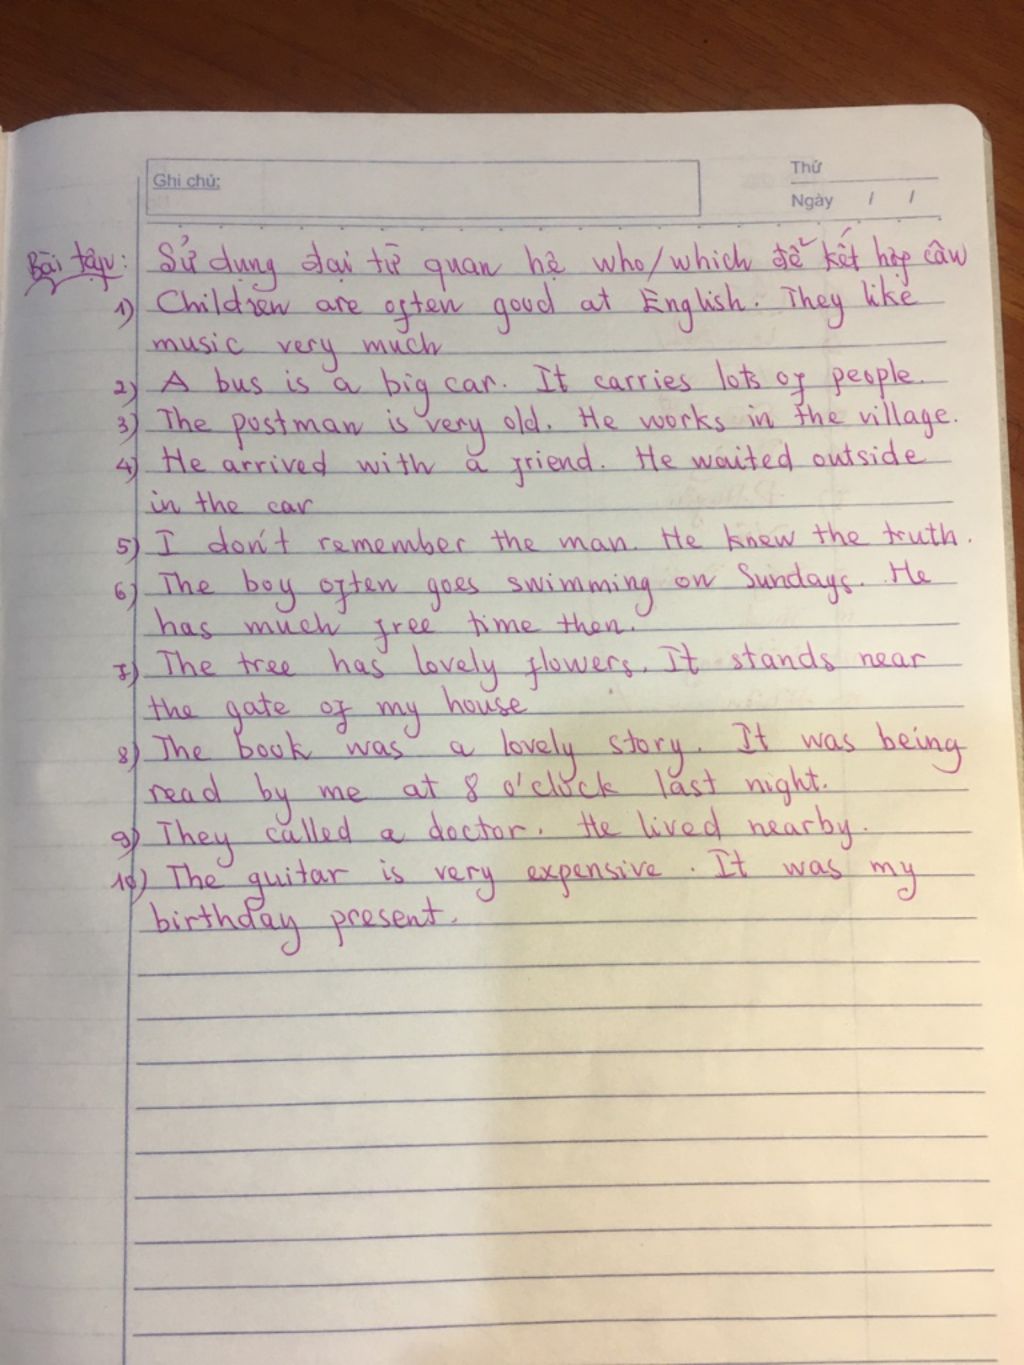 Ghi chú:
Thứ
Ngày / /
Bài tập: Sử dụng đại từ quan hệ who/which để kết hợp câu
1) Children are often good at English. They like
music very much
2) A bus is a big car. It carries lots of people.
3) The postman is very old. He works in the village.
4) He arrived with a friend. He waited outside
in the car
5) I don't remember the man. He knew the truth.
6) The boy often goes swimming on Sundays. He
has much free time then.
7) The tree has lovely flowers. It stands near
the gate of my house
8) The book was a lovely story. It was being
read by me at 8 o'clock last night.
9) They called a doctor. He lived nearby.
10) The guitar is very expensive. It was my
birthday present.